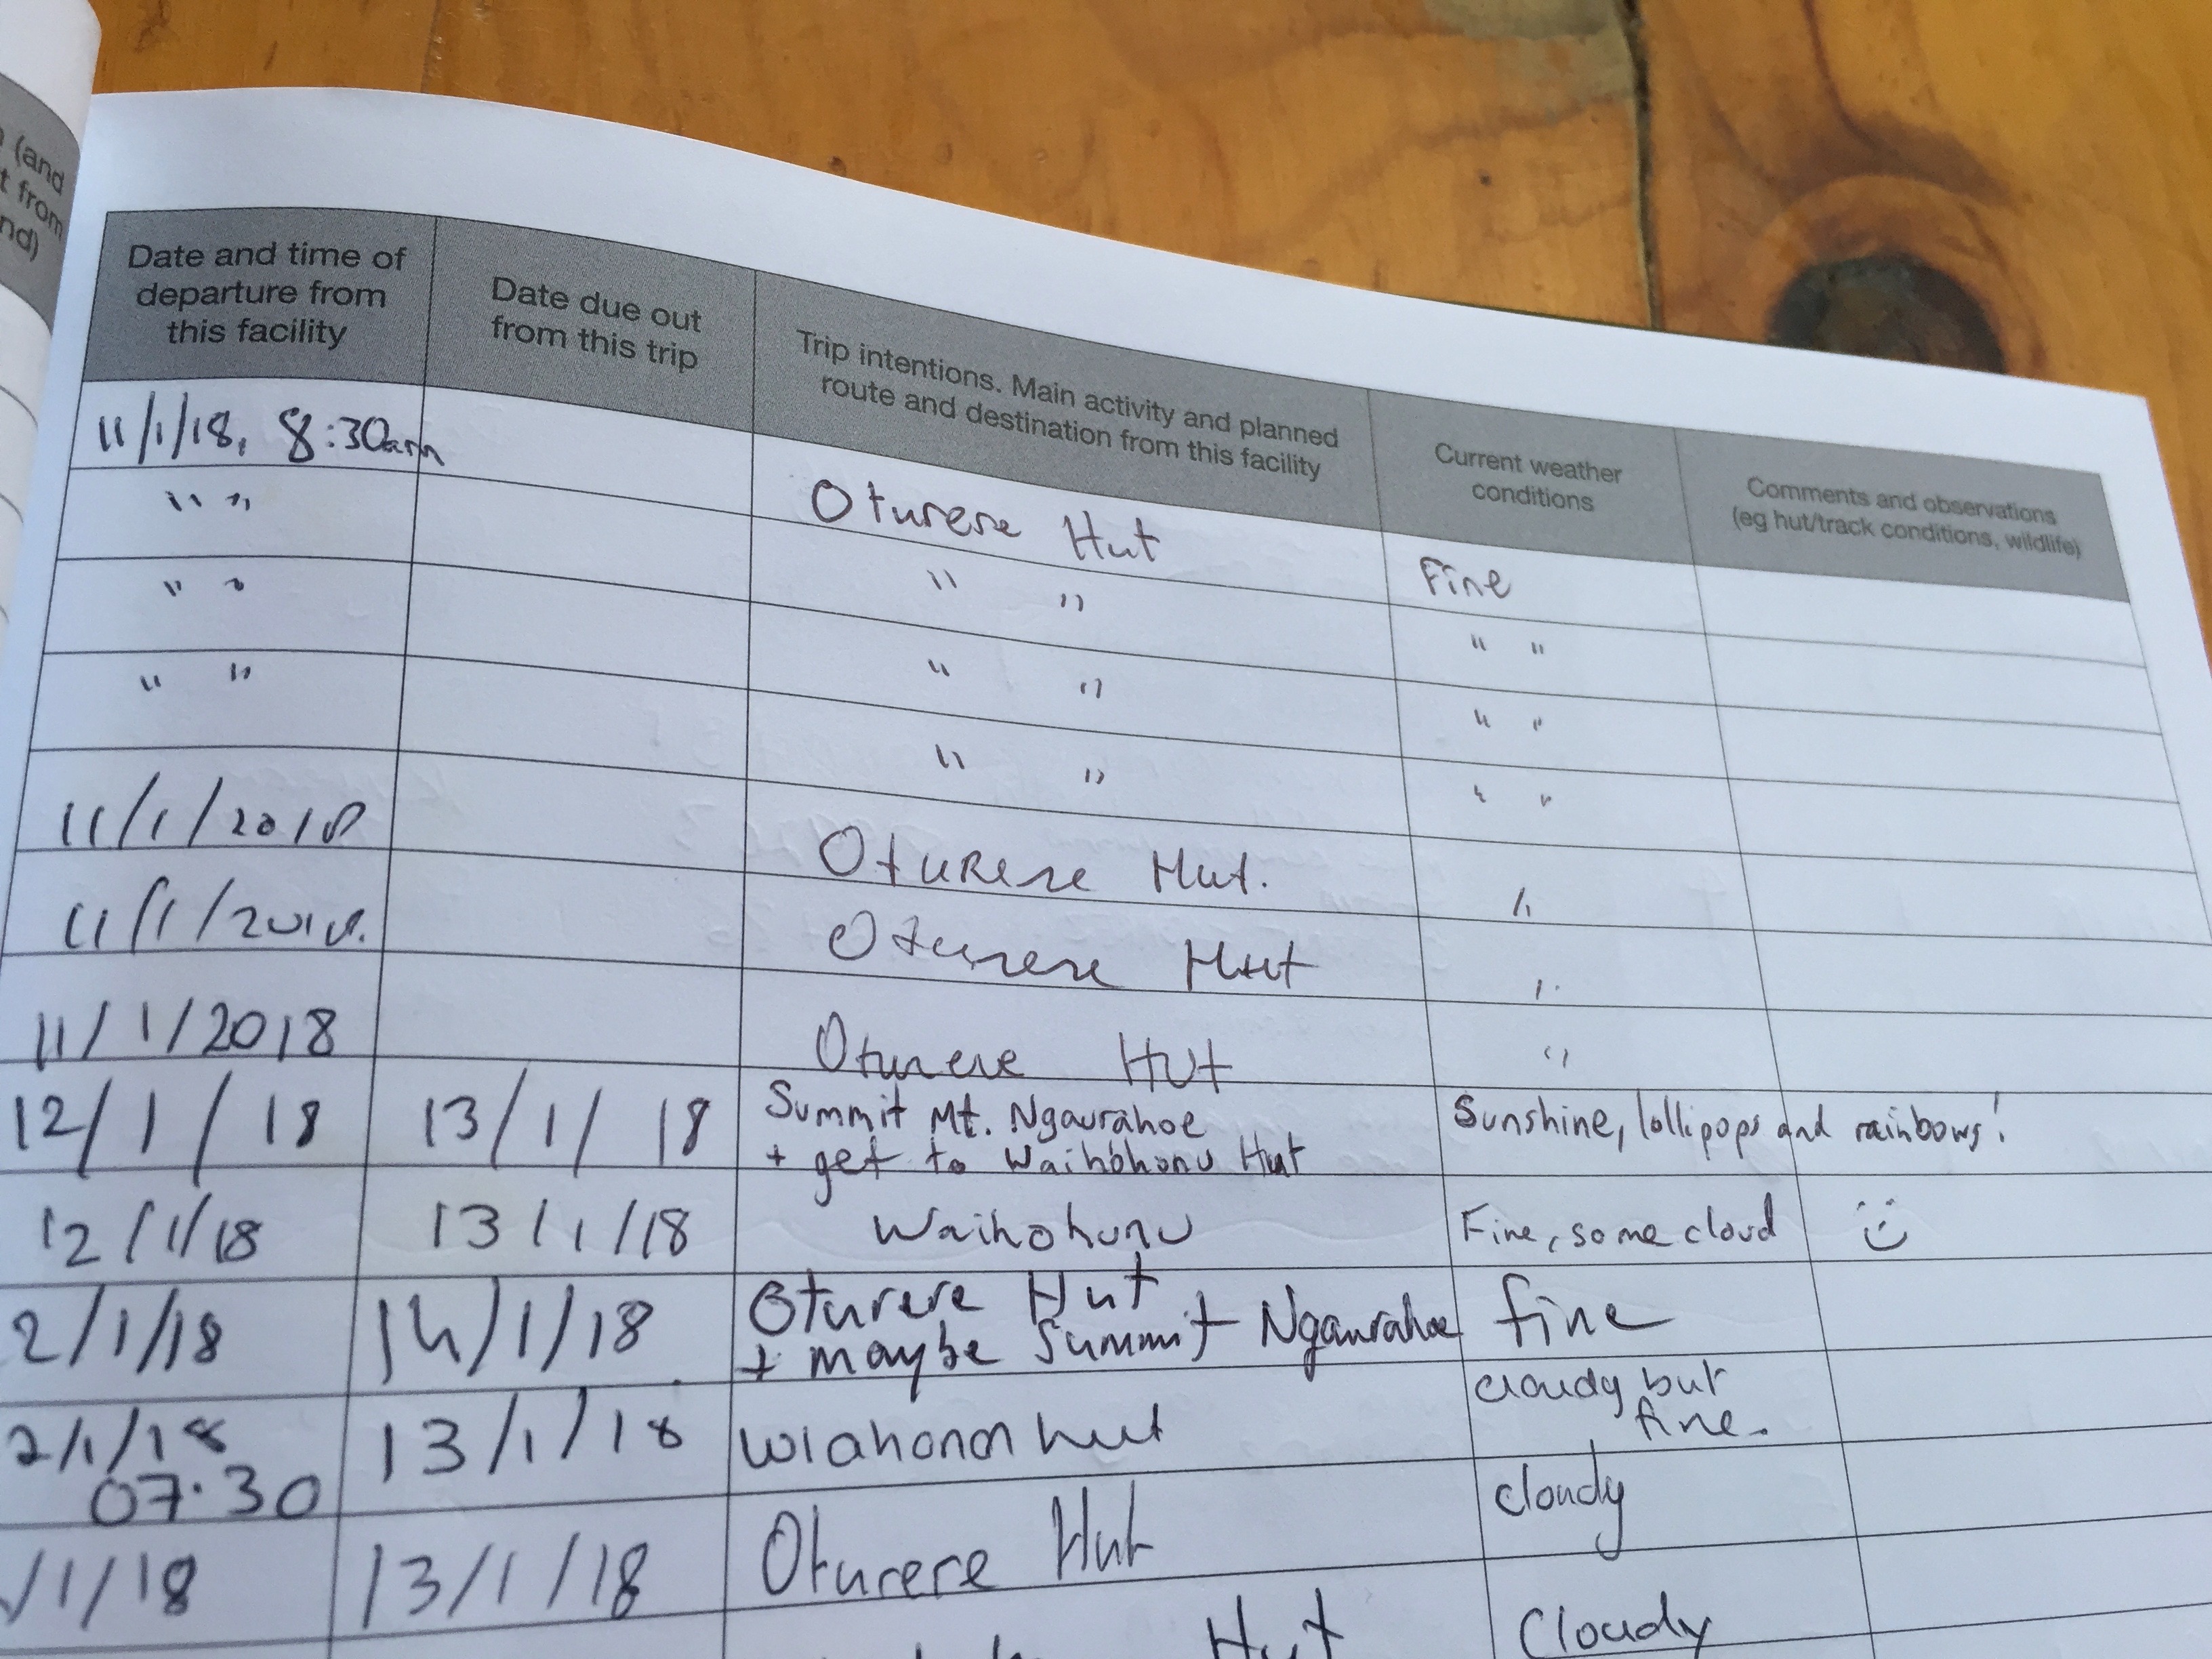 (and
from
nd)
Date and time of
departure from
this facility
Date due out
from this trip
Trip intentions. Main activity and planned
route and destination from this facility
Current weather
conditions
Comments and observations
(eg hut/track conditions, wildlife)
11/1/18, 8:30am
Oturere Hut
Fine
" "
" "
" "
" "
" "
" "
" "
" "
" "
11/1/2018
Oturere Hut.
"
11/1/2018.
Oturere Hut
"
11/1/2018
Oturere Hut
"
12/1/18
13/1/18
Summit Mt. Ngaurahoe
+ get to Waihohonu Hut
Sunshine, lollipops and rainbows!
12/1/18
13/1/18
Waihohunu
Fine, some cloud
2/1/18
14/1/18
Oturere Hut
+ maybe Summit Ngaurahoe
fine
2/1/18
07.30
13/1/18
wiahonon hut
cloudy but
fine.
/1/18
13/1/18
Oturere Hut
cloudy
Hut
Cloudy